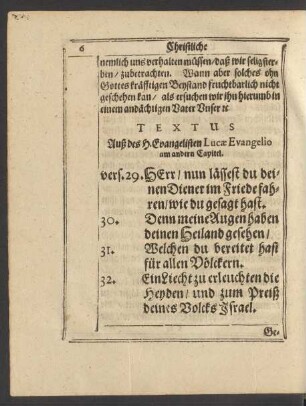 6 Christliche
nemlich uns verhalten müssen/ daß wir seligster-
ben/ zubetrachten. Wann aber solches ohn
Gottes kräfftigen Beystand fruchtbarlich nicht
geschehen kan/ als ersuchen wir ihn hierumb in
einem andächtigen Vater Unser ꝛc.
TEXTUS
Auß des H. Evangelisten Lucæ Evangelio
am andern Capitel.
vers. 29. HErr/ nun lässest du dei-
nen Diener im Friede fah-
ren/ wie du gesagt hast.
30. Denn meine Augen haben
deinen Heiland gesehen/
31. Welchen du bereitet hast
für allen Völckern.
32. Ein Liecht zu erleuchten die
Heyden/ und zum Preiß
deines Volcks Israel.
Ge-